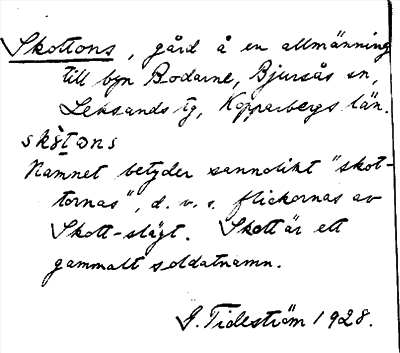 Skottons, gård å en allmänning
till byn Bodarne, Bjursås sn,
Leksands tg, Kopparbergs län.
skòtǝns
Namnet betyder sannolikt "skot-
tornas", d. v. s. flickornas av
Skott-släkt. Skott är ett
gammalt soldatnamn.
G. Tideström 1928.